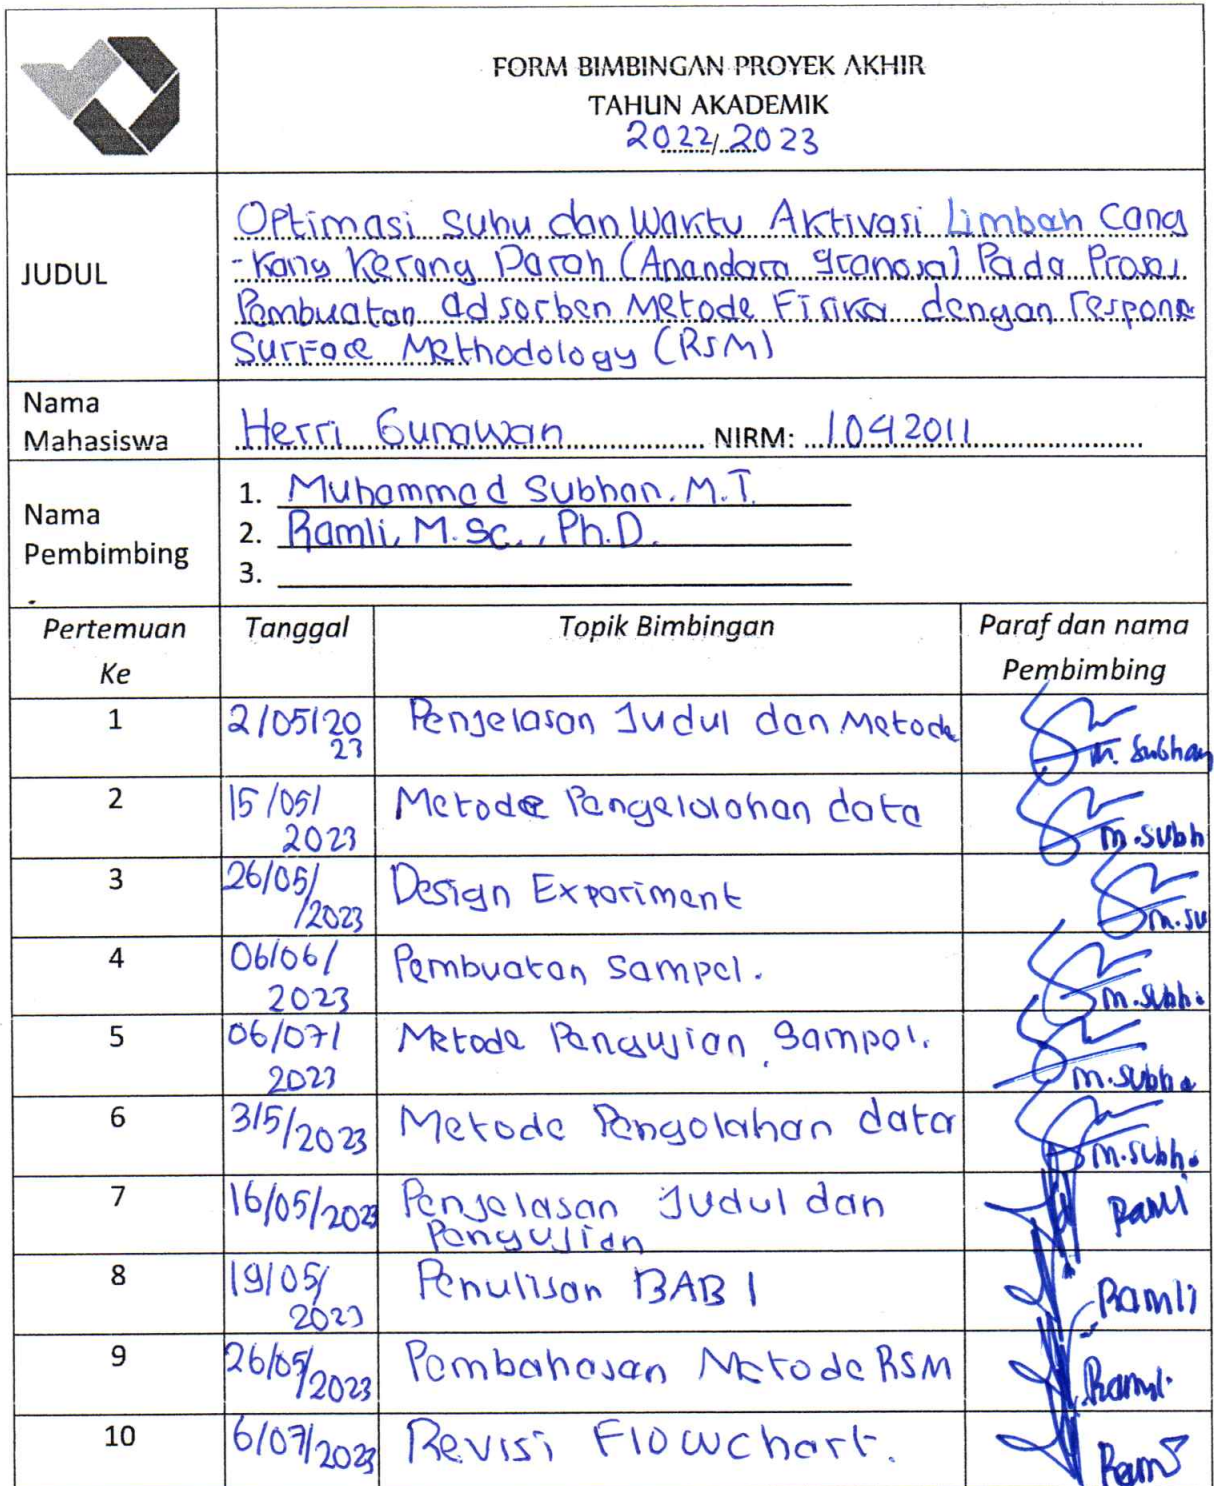 FORM BIMBINGAN PROYEK AKHIR
TAHUN AKADEMIK
2022/2023
JUDUL
Optimasi Suhu dan Waktu Aktivasi Limbah Cang
-kang Kerang Darah (Anandara granosa) Pada Proses
Pembuatan adsorben Metode Fisika dengan respone
Surface Methodology (RSM)
Nama
Mahasiswa
Herri Gunawan NIRM: 1042011
Nama
Pembimbing
1. Muhammad Subhan. M.T.
2. Ramli, M.Sc., Ph.D.
3.
Pertemuan
Ke
Tanggal
Topik Bimbingan
Paraf dan nama
Pembimbing
1 2/05/20 Penjelasan Judul dan Metode
23 M. Subhan
2 15/05/ Metode Pengelolahan data
2023 M.Subh
3 26/05/ Design Experiment
/2023 M.Su
4 06/06/ Pembuatan Sampel.
2023 M.Subha
5 06/07/ Metode Pengujian Sampel.
2023 M.Subha
6 3/5/2023 Metode Pengolahan data
M.Subha
7 16/05/2023 Penjelasan Judul dan Ramli
Pengujian
8 19/05/ Penulisan BAB I
2023 Ramli
9 26/05/2023 Pembahasan Metode RSM
Ramli
10 6/07/2023 Revisi Flowchart.
Raml